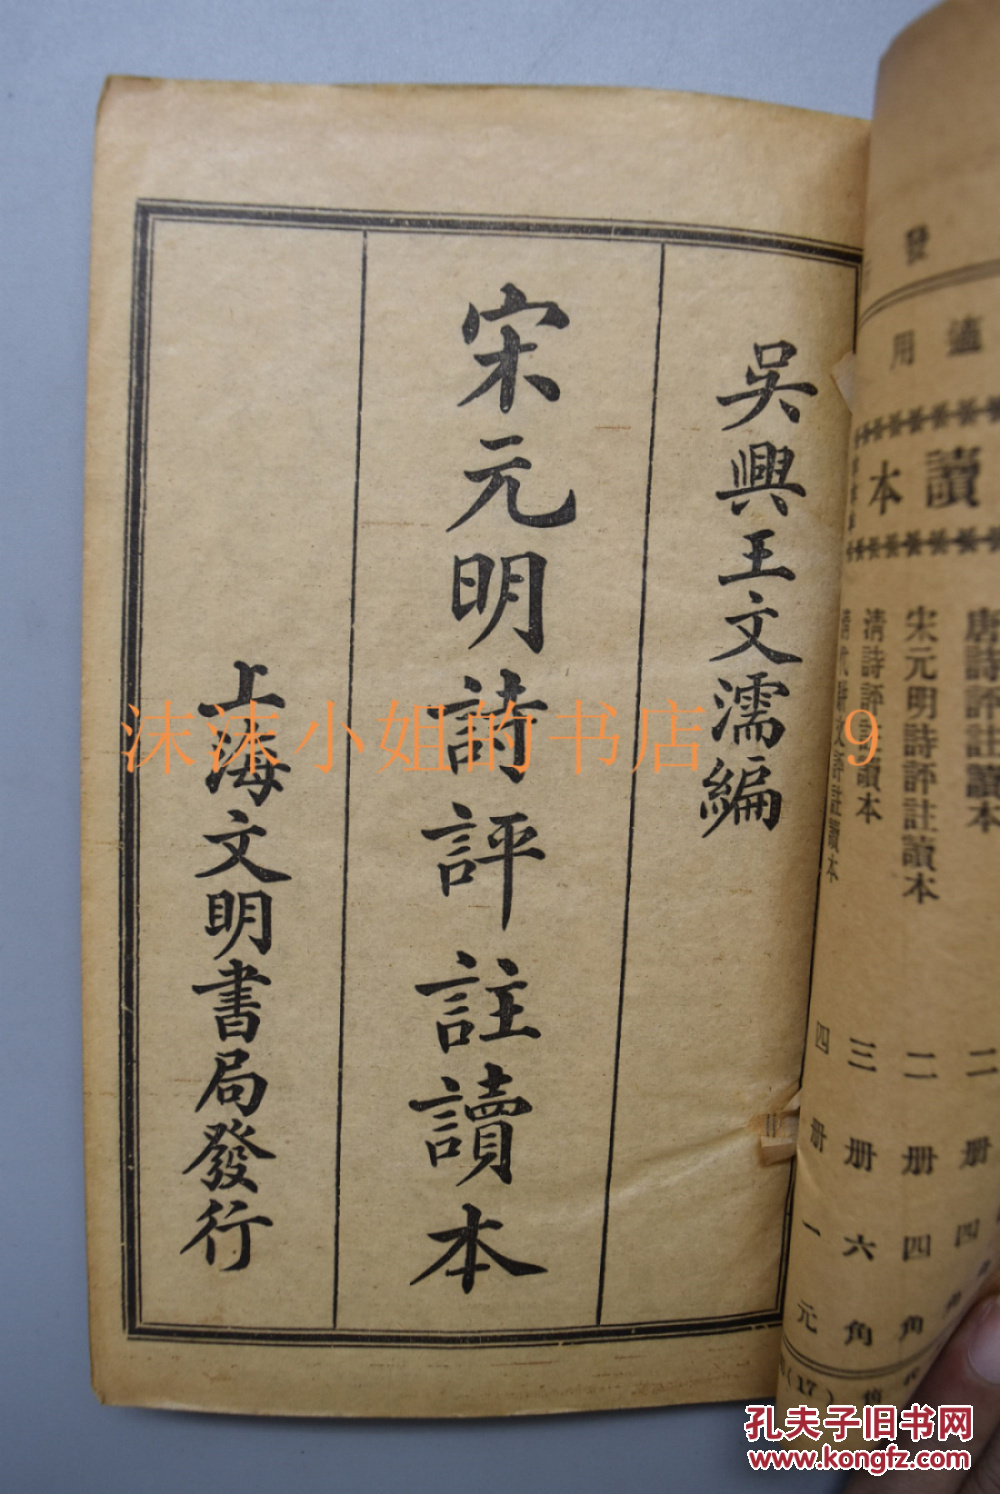 吳興王文濡編
宋元明詩評註讀本
上海文明書局發行
發
適用
讀本
唐詩評註讀本 二册 四
宋元明詩評註讀本 二册 四角
清詩評註讀本 三册 六角
四册 一元
(17)
沫沫小姐的书店 9
孔夫子旧书网
www.kongfz.com